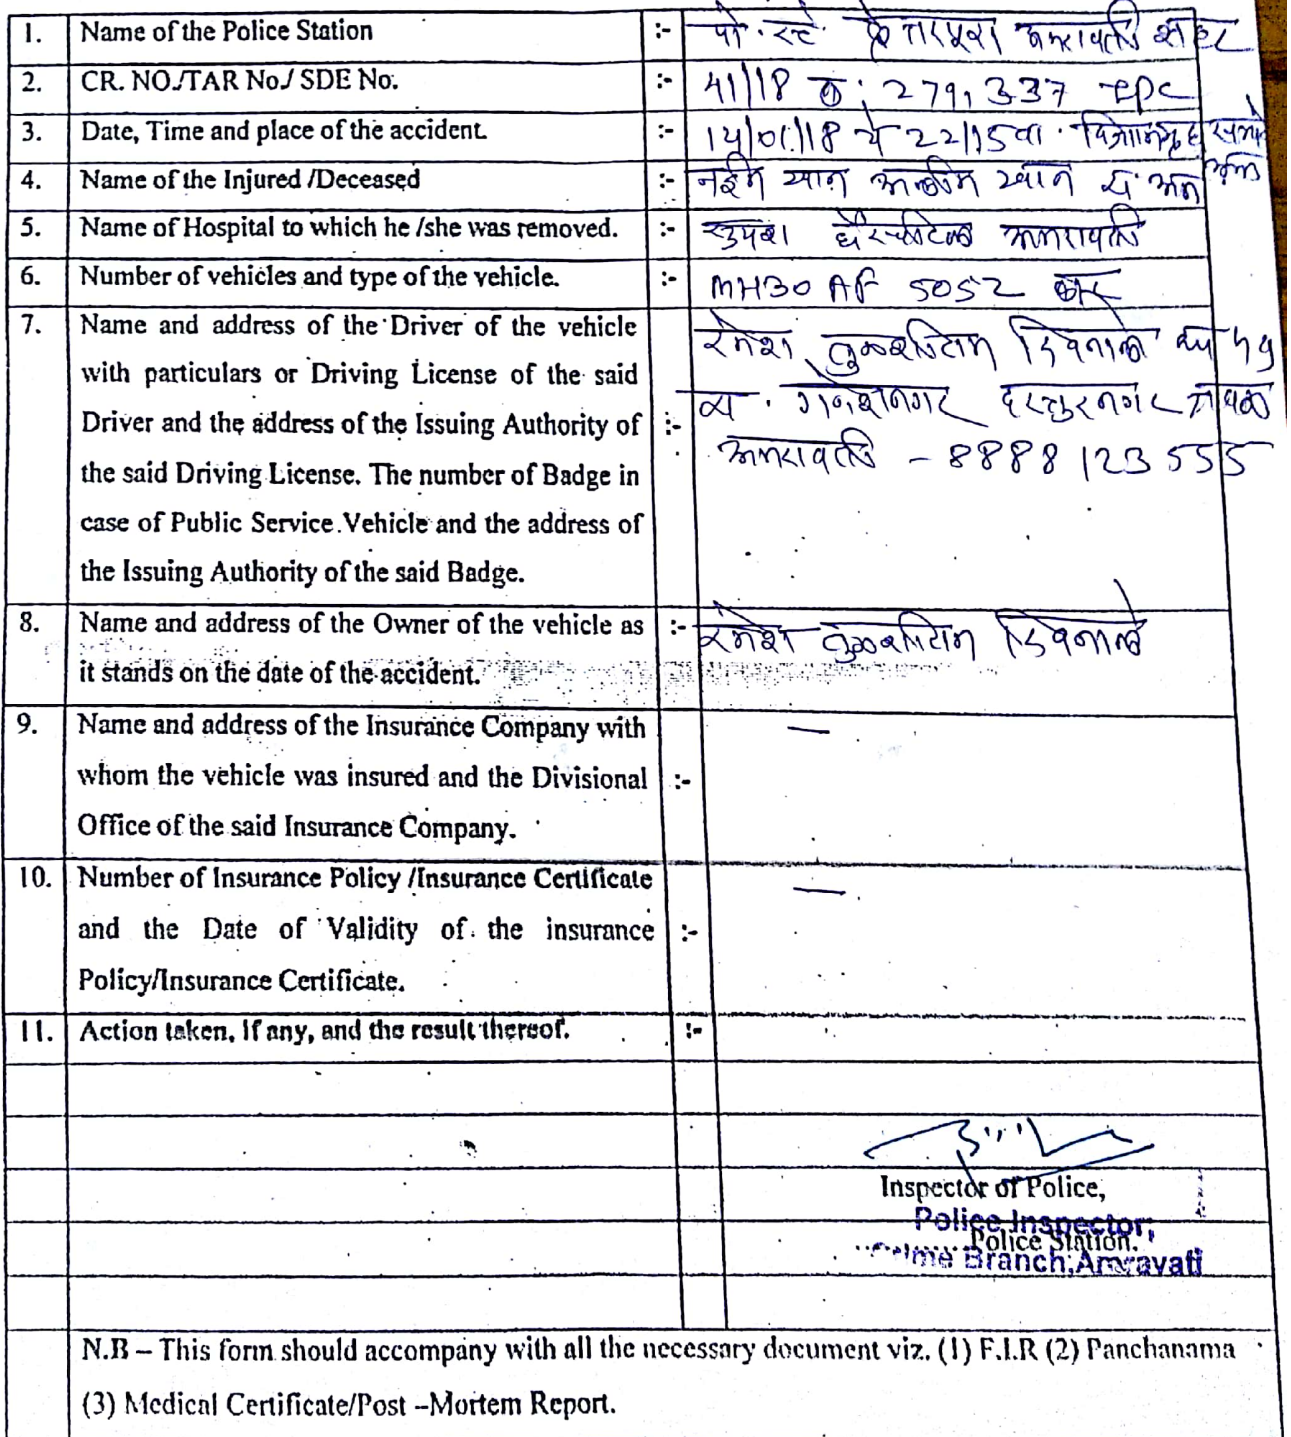 1. Name of the Police Station :- पो. स्टे. फ्रेजरपुरा अमरावती शहर
2. CR. NO./TAR No./ SDE No. :- 41/18 क. 279, 337 IPC
3. Date, Time and place of the accident. :- 14/01/18 चे 22/15 वा. विश्रामगृह समोर
4. Name of the Injured /Deceased :- नईम खान
5. Name of Hospital to which he /she was removed. :- हॉस्पीटल अमरावती
6. Number of vehicles and type of the vehicle. :- MH30 AF 5052 कार
7. Name and address of the Driver of the vehicle :- रमेश तुळशीराम
with particulars or Driving License of the said गणेशनगर दस्तुरनगर जवळ
Driver and the address of the Issuing Authority of अमरावती - 8888123555
the said Driving License. The number of Badge in
case of Public Service Vehicle and the address of
the Issuing Authority of the said Badge.
8. Name and address of the Owner of the vehicle as :- रमेश तुळशीराम
it stands on the date of the accident.
9. Name and address of the Insurance Company with —
whom the vehicle was insured and the Divisional :-
Office of the said Insurance Company.
10. Number of Insurance Policy /Insurance Certificate —
and the Date of Validity of the insurance :-
Policy/Insurance Certificate.
11. Action taken, if any, and the result thereof. :-
Inspector of Police,
Police Inspector,
Police Station.
Crime Branch, Amravati
N.B – This form should accompany with all the necessary document viz. (1) F.I.R (2) Panchanama
(3) Medical Certificate/Post –Mortem Report.